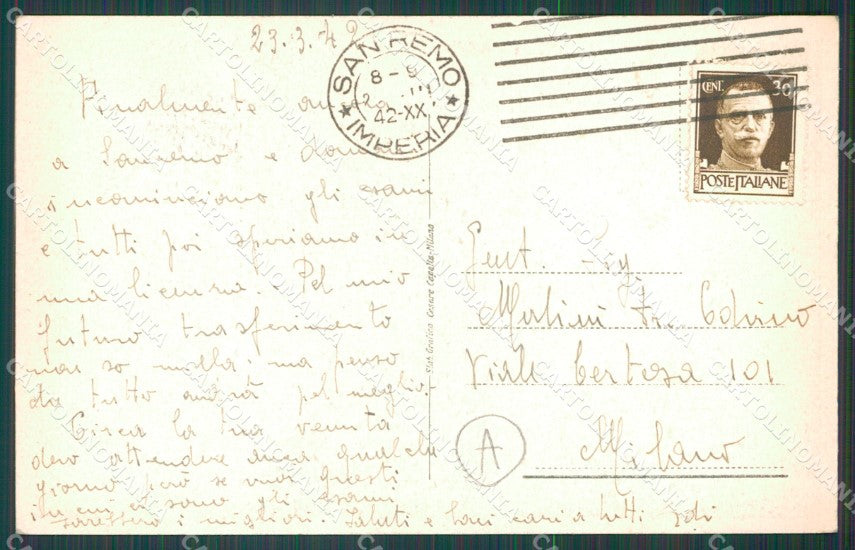 23.3.42
SAN REMO
8-9
III
42-XX
IMPERIA
CENT. 30
POSTE ITALIANE
Finalmente ancora
a Sanremo e domani
incominciano gli esami
e tutti poi speriamo in
una licenza. Pel mio
futuro trasferimento
non so nulla: ma penso
che tutto andrà pel meglio.
Circa la tua venuta
devo attendere ancora qualche
giorno però se vuoi questi
in cui ci sono gli esami
sarebbero i migliori. Saluti e baci cari a tutti
Stab. Grafico Cesare Capello-Milano
Gent. Sig.
Molini
Viale Certosa 101
Milano
A
CARTOLINOMANIA